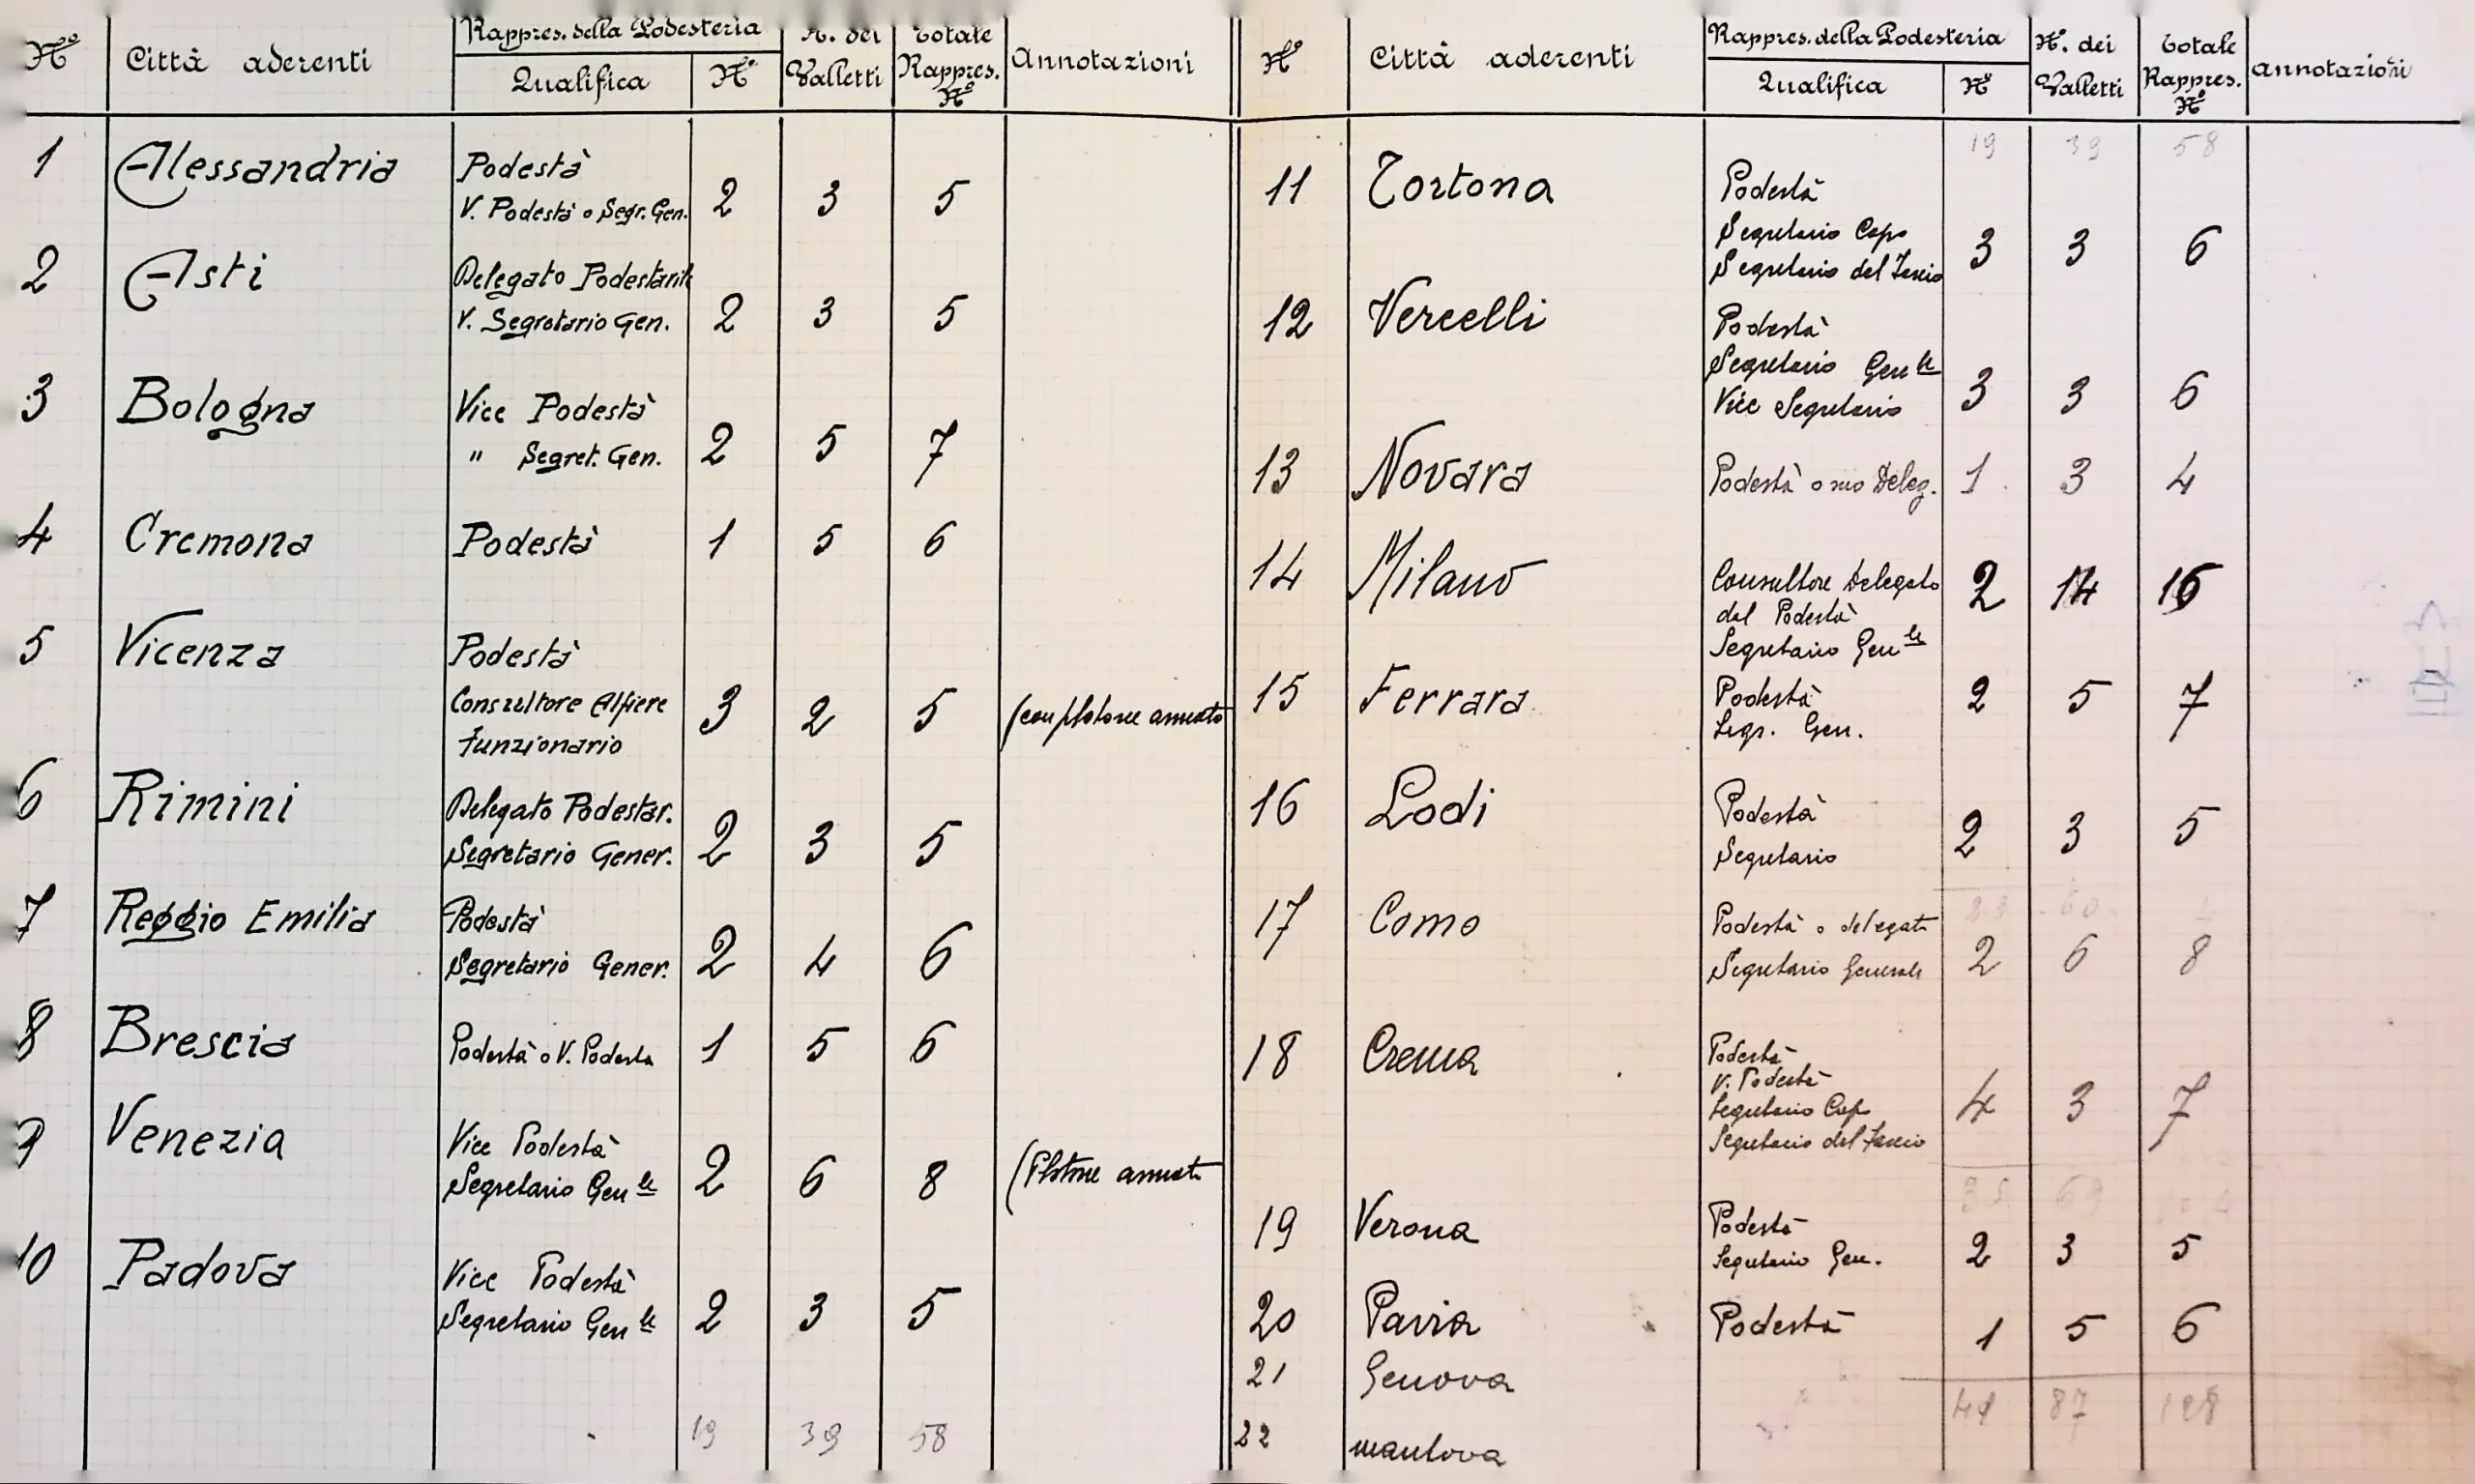 Nº Città aderenti Rappres. della Podesteria N. dei Valletti Totale Rappres. Nº Annotazioni
Qualifica Nº
1 Alessandria Podestà
V. Podestà o Segr. Gen. 2 3 5
2 Asti Delegato Podestarile
V. Segretario Gen. 2 3 5
3 Bologna Vice Podestà
" Segret. Gen. 2 5 7
4 Cremona Podestà 1 5 6
5 Vicenza Podestà
Consultore Alfiere 3 2 5 (con plotone armato
Funzionario
6 Rimini Delegato Podestar.
Segretario Gener. 2 3 5
7 Reggio Emilia Podestà
Segretario Gener. 2 4 6
8 Brescia Podestà o V. Podestà 1 5 6
9 Venezia Vice Podestà
Segretario Gen le 2 6 8 (Plotone armato
10 Padova Vice Podestà
Segretario Gen le 2 3 5
19 39 58
Nº Città aderenti Rappres. della Podesteria N. dei Valletti Totale Rappres. Nº annotazioni
Qualifica Nº
19 39 58
11 Tortona Podestà
Segretario Capo 3 3 6
Segretario del Fascio
12 Vercelli Podestà
Segretario Gen le
Vice Segretario 3 3 6
13 Novara Podestà o suo Deleg. 1 3 4
14 Milano Consultore Delegato 2 14 16
del Podestà
Segretario Gen le
15 Ferrara Podestà 2 5 7
Segr. Gen.
16 Lodi Podestà
Segretario 2 3 5
17 Como Podestà o delegato
Segretario Generale 2 6 8
18 Crema Podestà
V. Podestà
Segretario Capo 4 3 7
Segretario del Fascio
35 69
19 Verona Podestà
Segretario Gen. 2 3 5
20 Pavia Podestà 1 5 6
21 Genova
87
22 mantova